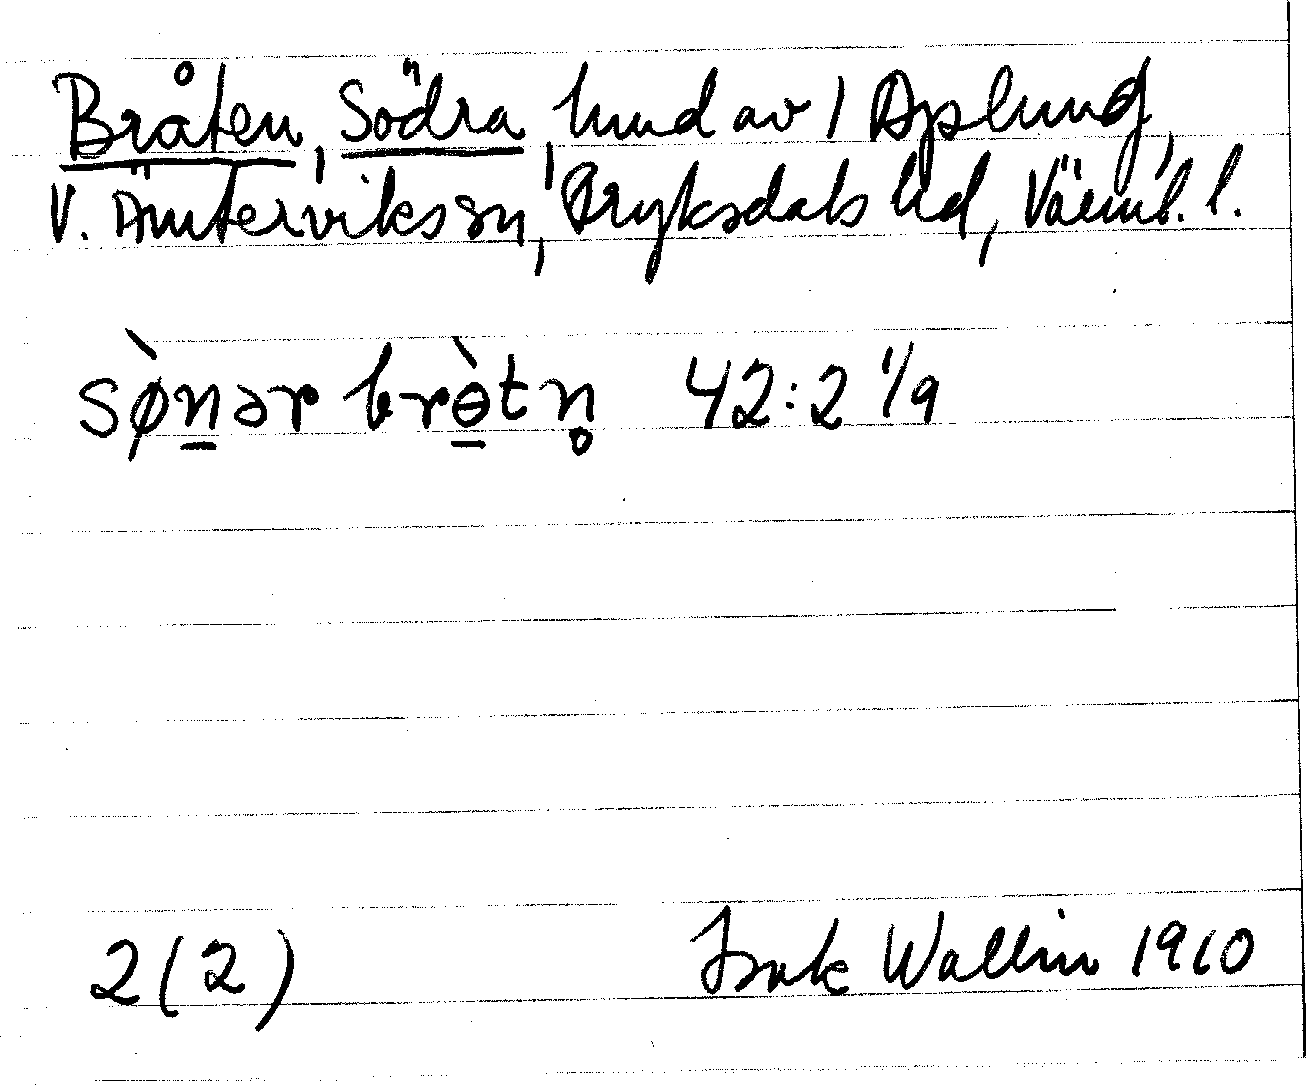 Bråten, Södra, hmd av 1 Asplund,
V. Ämterviks sn, Fryksdals hd, Värml. l.
sø̀n̠ər brɵ̠̀tn̥ 42:2 1/9
2(2) Isak Wallin 1910